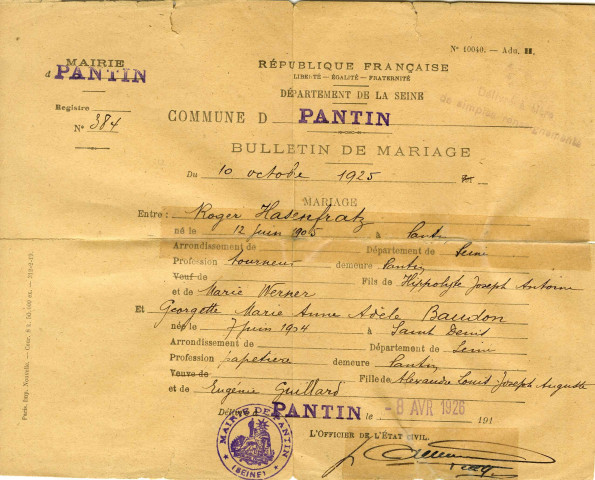 N° 10040. — Adm. II.
MAIRIE
d PANTIN
Registre
N° 384
RÉPUBLIQUE FRANÇAISE
LIBERTÉ — ÉGALITÉ — FRATERNITÉ
DÉPARTEMENT DE LA SEINE
Délivré à titre
de simple renseignements
COMMUNE D PANTIN
BULLETIN DE MARIAGE
Du 10 octobre 1925
MARIAGE
Entre: Roger Hasenfratz
né le 12 Juin 1905 à Pantin
Arrondissement de Département de Seine
Profession tourneur demeure Pantin
Veuf de Fils de Hippolyte Joseph Antoine
et de Marie Werner
Et Georgette Marie Anne Adèle Baudon
née le 7 Juin 1904 à Saint Denis
Arrondissement de Département de Seine
Profession papetière demeure Pantin
Veuve de Fille de Alexandre Louis Joseph Auguste
et de Eugénie Guillard
Délivré à PANTIN le -8 AVR 1926 191
L'OFFICIER DE L'ÉTAT CIVIL.
MAIRIE DE PANTIN
(SEINE)
Paris. Imp. Nouvelle.